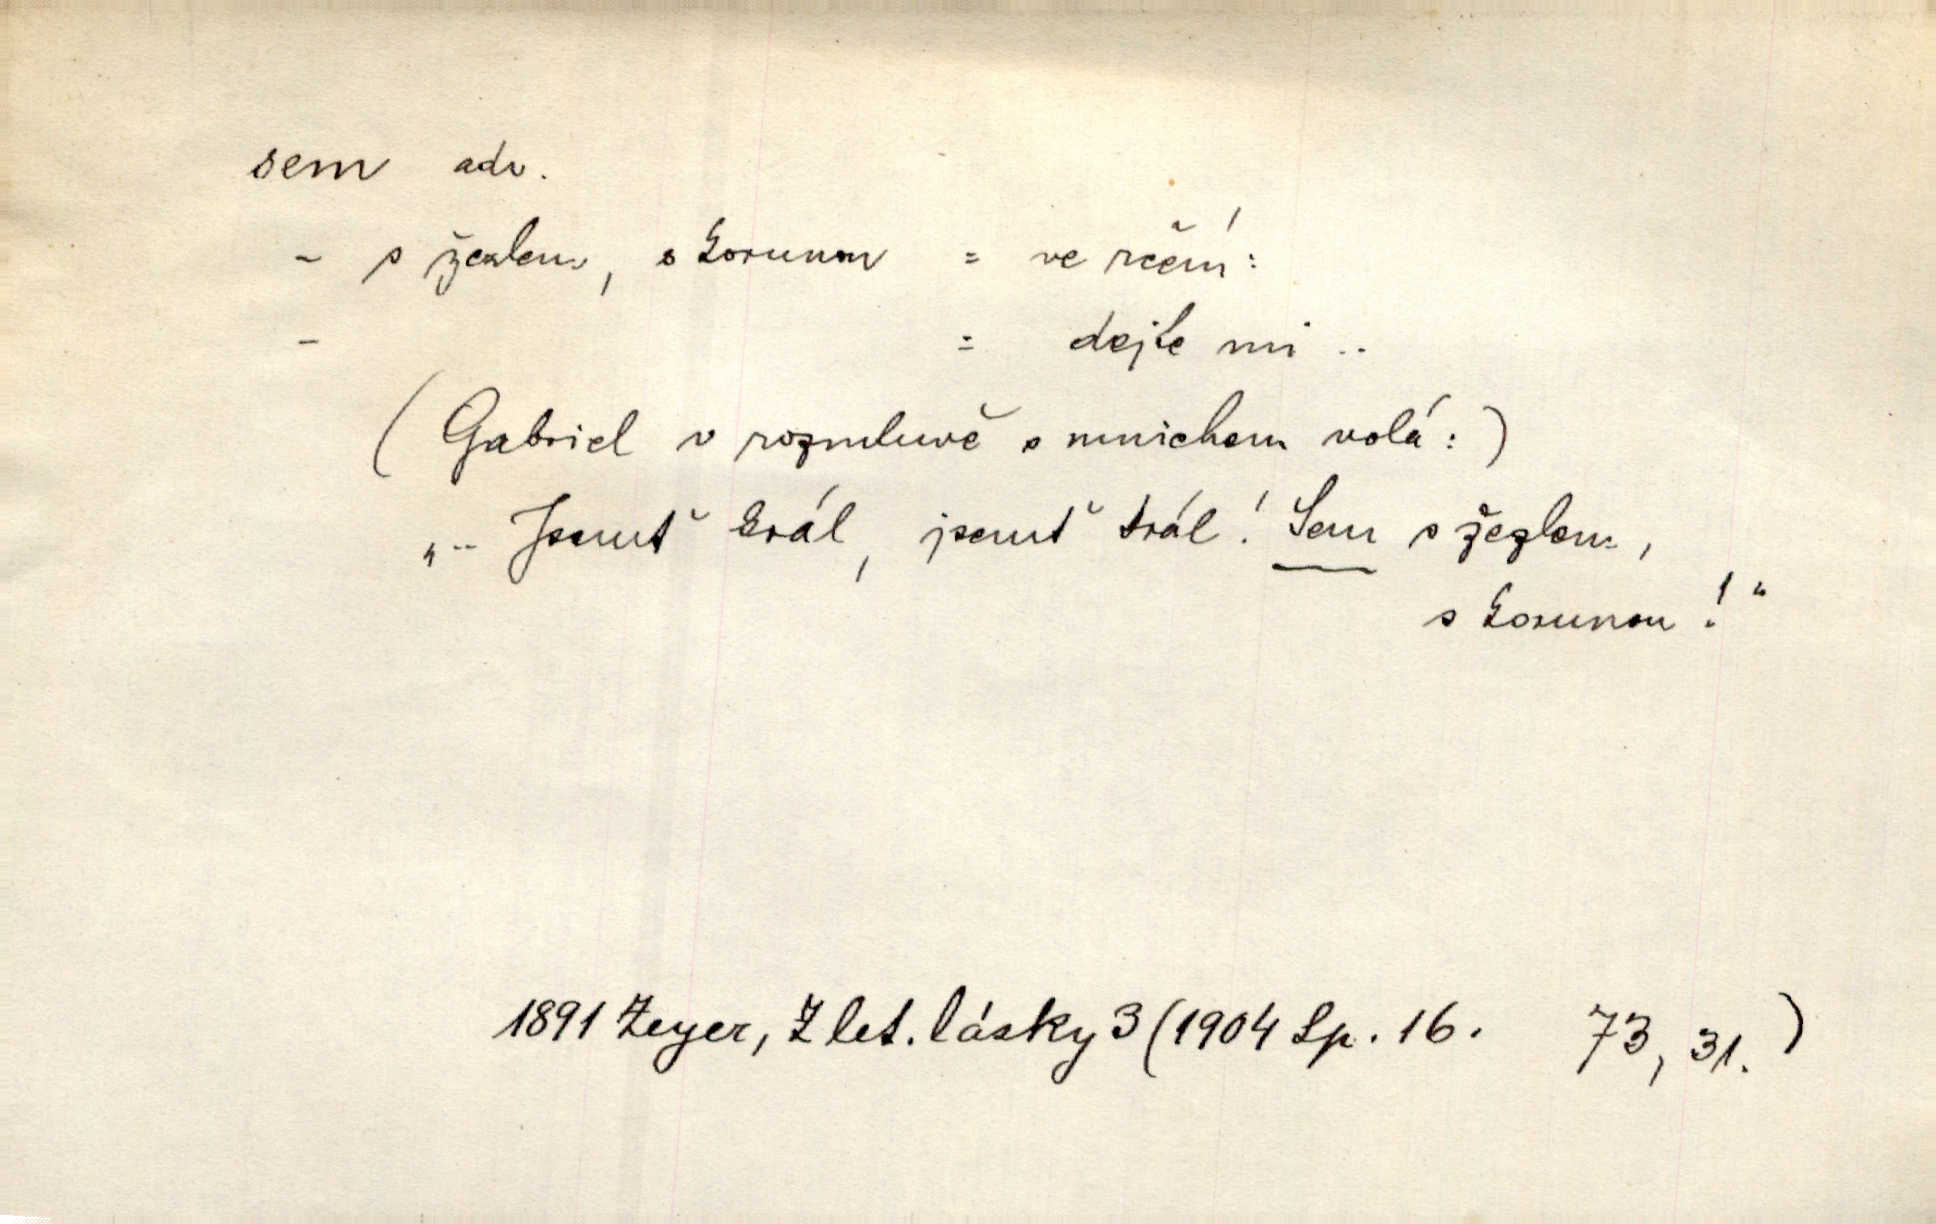 sem adv.
- s žezlem, s korunou = ve rčení:
- = dejte mi ..
( Gabriel v rozmluvě s mnichem volá: )
„.. Jsemť král, jsemť král! Sem s žezlem,
s korunou!“
1891 Zeyer, Z let. lásky 3 (1904 Sp. 16. 73, 31. )